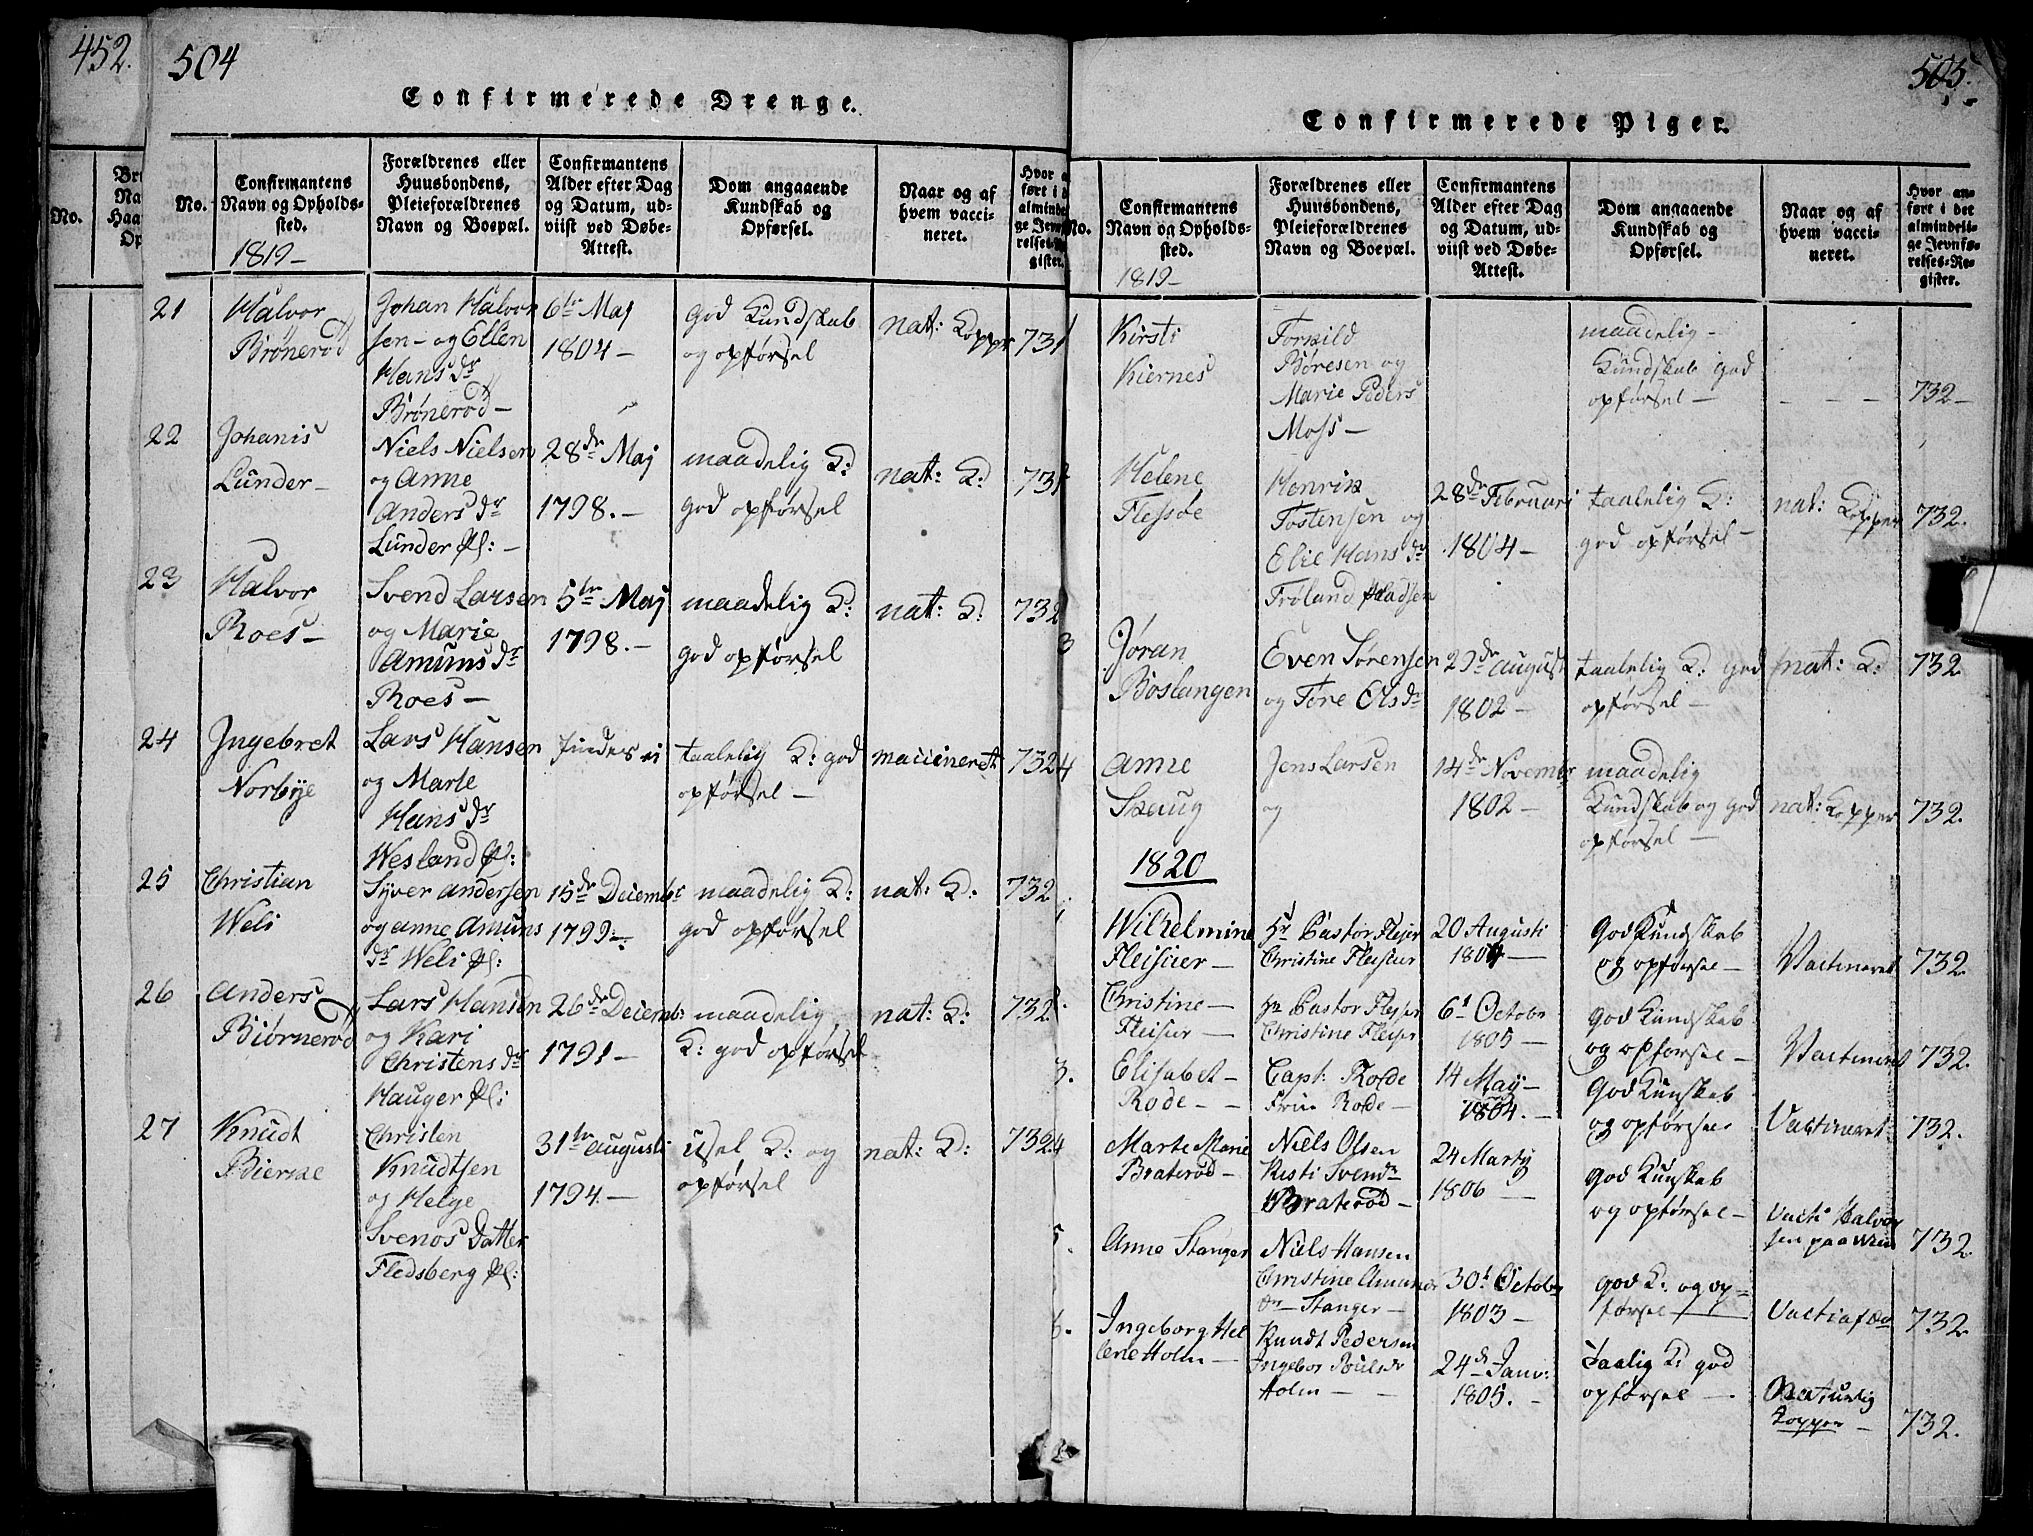 452.
504
Confirmerede Drenge.
No.
No.
Confirmantens
Navn og Opholds-
sted.
1819-
Forældrenes eller
Huusbondens,
Pleieforældrenes
Navn og Boepæl.
Confirmantens
Alder efter Dag
og Datum, ud-
viist ved Døbe-
Attest.
Dom angaaende
Kundskab og
Opførsel.
Naar og af
hvem vacci-
neret.
21
Halvor
Brønerød
Johan Halvor
sen - og Ellen
Hans dr
Brønerød -
6te Maj
1804 -
god Kundskab
og opførsel
nat: Kopper
731
22
Johanis
Lunder -
Niels Nielsen
og Anne
Anders dr
Lunder Pl: -
28de Maj
1798. -
maadelig K:
god opførsel
nat: K:
731
23
Halvor
Roes -
Svend Larsen
og Marie
Amuns dr
Roes -
5te Maj
1798. -
maadelig K:
god opførsel
nat: K:
732
24
Ingebret
Norbye
Lars Hansen
og Marte
Hans dr
Wesland Pl:
findes ei
taalelig K: god
opførsel -
waccineret
732
25
Christian
Weli
Syver Andersen
og Anne Amuns
dr Weli Pl:
15de Decembr
1799 -
maadelig K:
god opførsel
nat: K:
732
26
Anders
Biørnerød
Lars Hansen
og Kari
Christens dr
Hauger Pl:
26de Decemb:
1791 -
maadelig
K: god opførsel
nat: K:
732
27
Knudt
Bierke
Christen
Knudtsen
og Helge
Svends Datter
Fledsberg Pl:
31te Augusti
1794. -
usel K: og
opførsel
nat: K:
732
505.
Confirmerede Piger.
No.
Confirmantens
Navn og Opholds-
sted.
1819-
Forældrenes eller
Huusbondens,
Pleieforældrenes
Navn og Boepæl.
Confirmantens
Alder efter Dag
og Datum, ud-
viist ved Døbe-
Attest.
Dom angaaende
Kundskab og
Opførsel.
Naar og af
hvem vacci-
neret.
Hvor an-
ført i det
almindeli-
ge Jevnfø-
relses-Re-
gister.
1
Kirsti
Kiernes
Torkild
Børesen og
Marie Peders
Moss -
maadelig -
Kundskab god
opførsel -
- - -
732 -
Helene
Flessøe
Henrik
Tostensen og
Elie Hans dr
Frøland Pladsen
28de Februari
1804 -
taalelig K:
god opførsel -
nat: Kopper
732.
3
Jøran
Boslangen
Even Sørensen
og Tore Ols dr
29de August
1802 -
taalelig K: god
opførsel -
nat: K:
732
4
Anne
Skaug
Jens Larsen
og
14de Novembr
1802 -
maadelig
Kundskab og god
opførsel -
nat: Kopper
732.
1820
1.
Wilhelmine
Fleischer -
Hr Pastor Flejser
Christine Fleischer
20 Augusti
1804 -
God Kundskab
og opførsel -
Vactineret
732
Christine -
Fleiser -
Hr Pastor Flejser
Christine Flejser
6t Octobr
1805 -
God Kundskab
og opførsel -
Vactineret
732.
3.
Elisabet -
Rode - -
Capt: Rode
Frue Rode -
14 May -
1804. -
God Kunskab
og opførsel
Vactineret
732.
4
Marte Marie
Braterød -
Niels Olsen
Kisti Svendr
Braterød -
24 Martij
1806 -
God Kunskab
og opførsel -
Vacti Halvor
sen paa
732
5.
Anne Stanger
Niels Hansen
Christine Amuns
dr Stanger -
30t Octobr
1803 -
God K: og op-
førsel -
732
6.
Ingeborg Hel
lene Holm -
Knudt Pedersen
Ingebor Poulsdr
Holm - -
24d Janv:
1805. -
Taalig K: god
opførsel -
Naturlig
Kopper -
732.